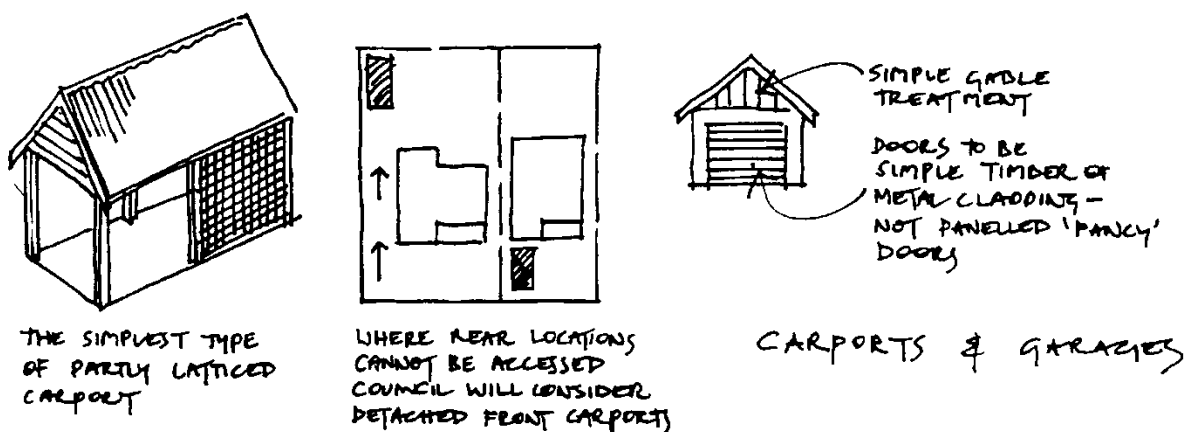 THE SIMPLEST TYPE
OF PARTLY LATTICED
CARPORT
WHERE REAR LOCATIONS
CANNOT BE ACCESSED
COUNCIL WILL CONSIDER
DETACHED FRONT CARPORTS
SIMPLE GABLE
TREATMENT
DOORS TO BE
SIMPLE TIMBER OR
METAL CLADDING –
NOT PANELLED 'FANCY'
DOORS
CARPORTS & GARAGES